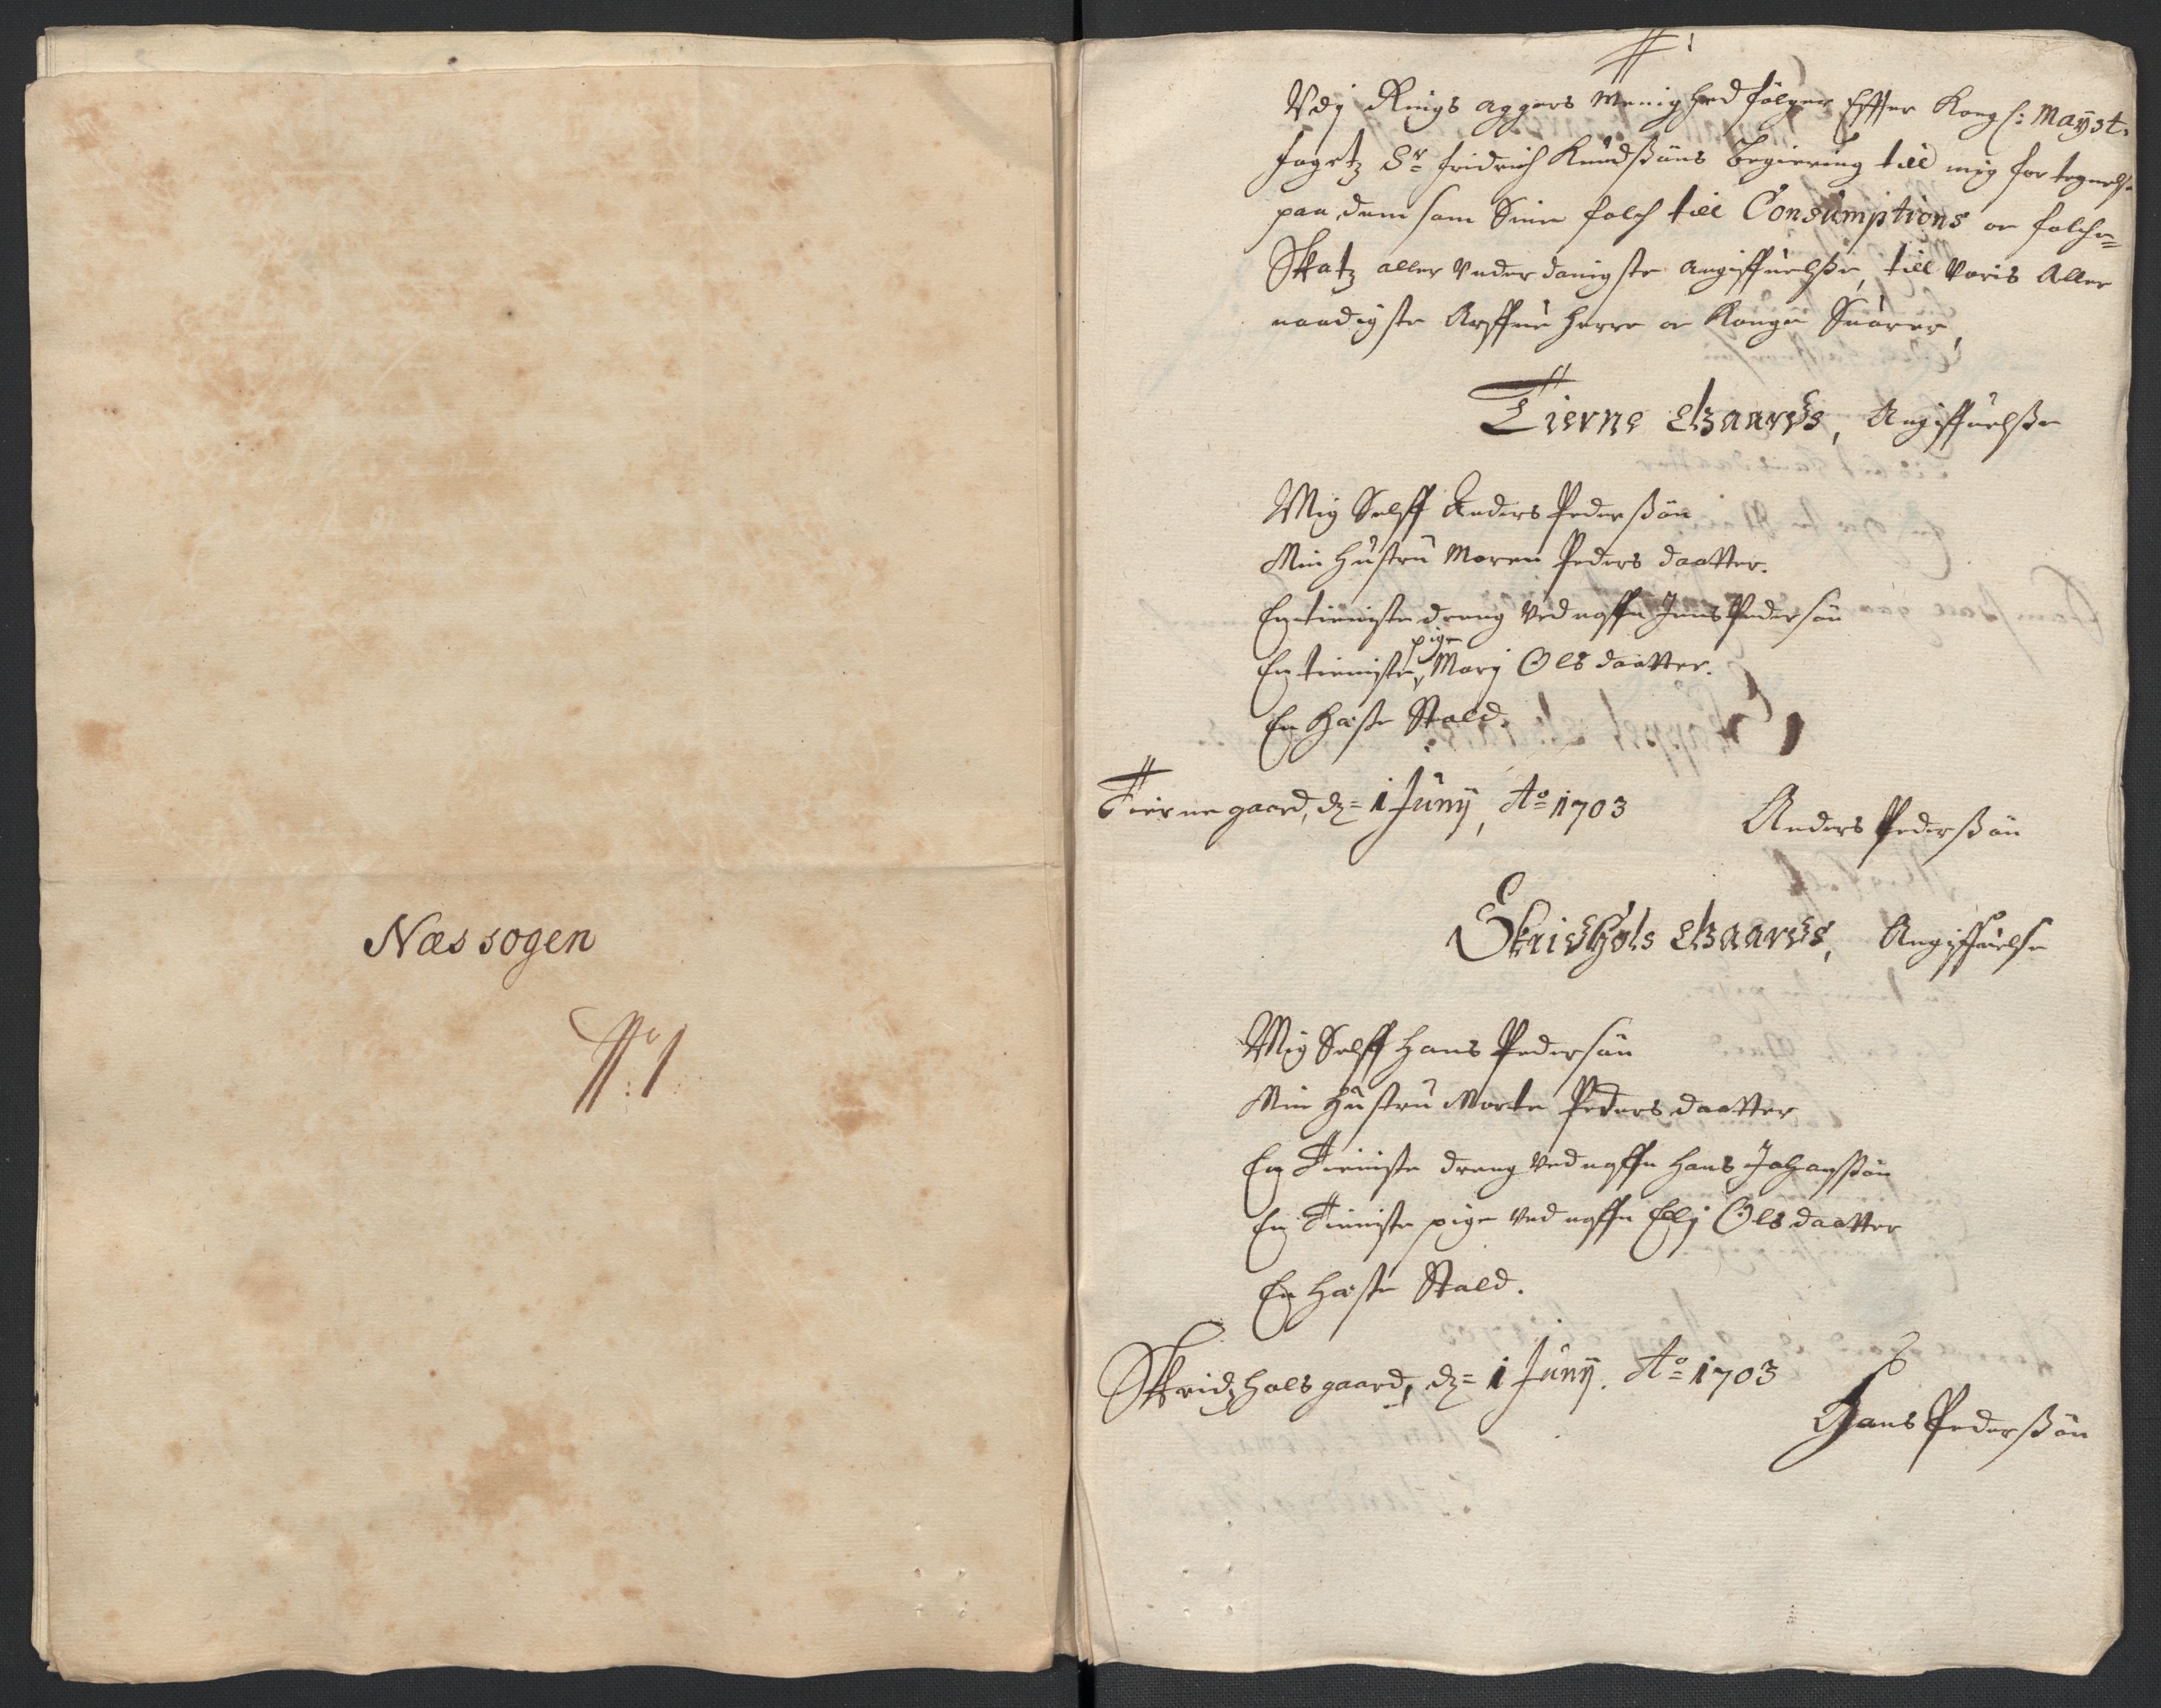 Næs sogen
No: 1
No 1
Vdj Rings aggers Menighed følger Effter Kongl: Mayst:
fogetz Sr fridrich Knudßøns begiering till mig fortegnelse
paa dem som Sine folch till Consumptions oc folche=
Skatz aller Vnderdanigste angiffuelße, till Voris Aller
naadigste Arffue herre oc Konge Suorer,
Tierne Gaards, Angiffuelße
Mig Selff Anders Pederßøn
Min hustru Maren Peders daatter.
En tieniste dreng Ved naffn Jens Pedersøn
pige
En tieniste Marj Ols daatter.
En hæste Stald.
Tierne gaard, dz= 1 Junij, Ao= 1703
Anders Pederßøn
Skridshols Gaards, Angiffuelse
Mig Selff Hans Pedersøn
Min Hustru Marte Peders daatter
En Tieniste dreng Ved naffn Hans Johanßøn
En Tieniste pige Ved naffn Elj Ols daatter
En Hæste Stald.
Skridzhols gaard, dz= 1 Junij. Ao= 1703
Hans Pederßøn